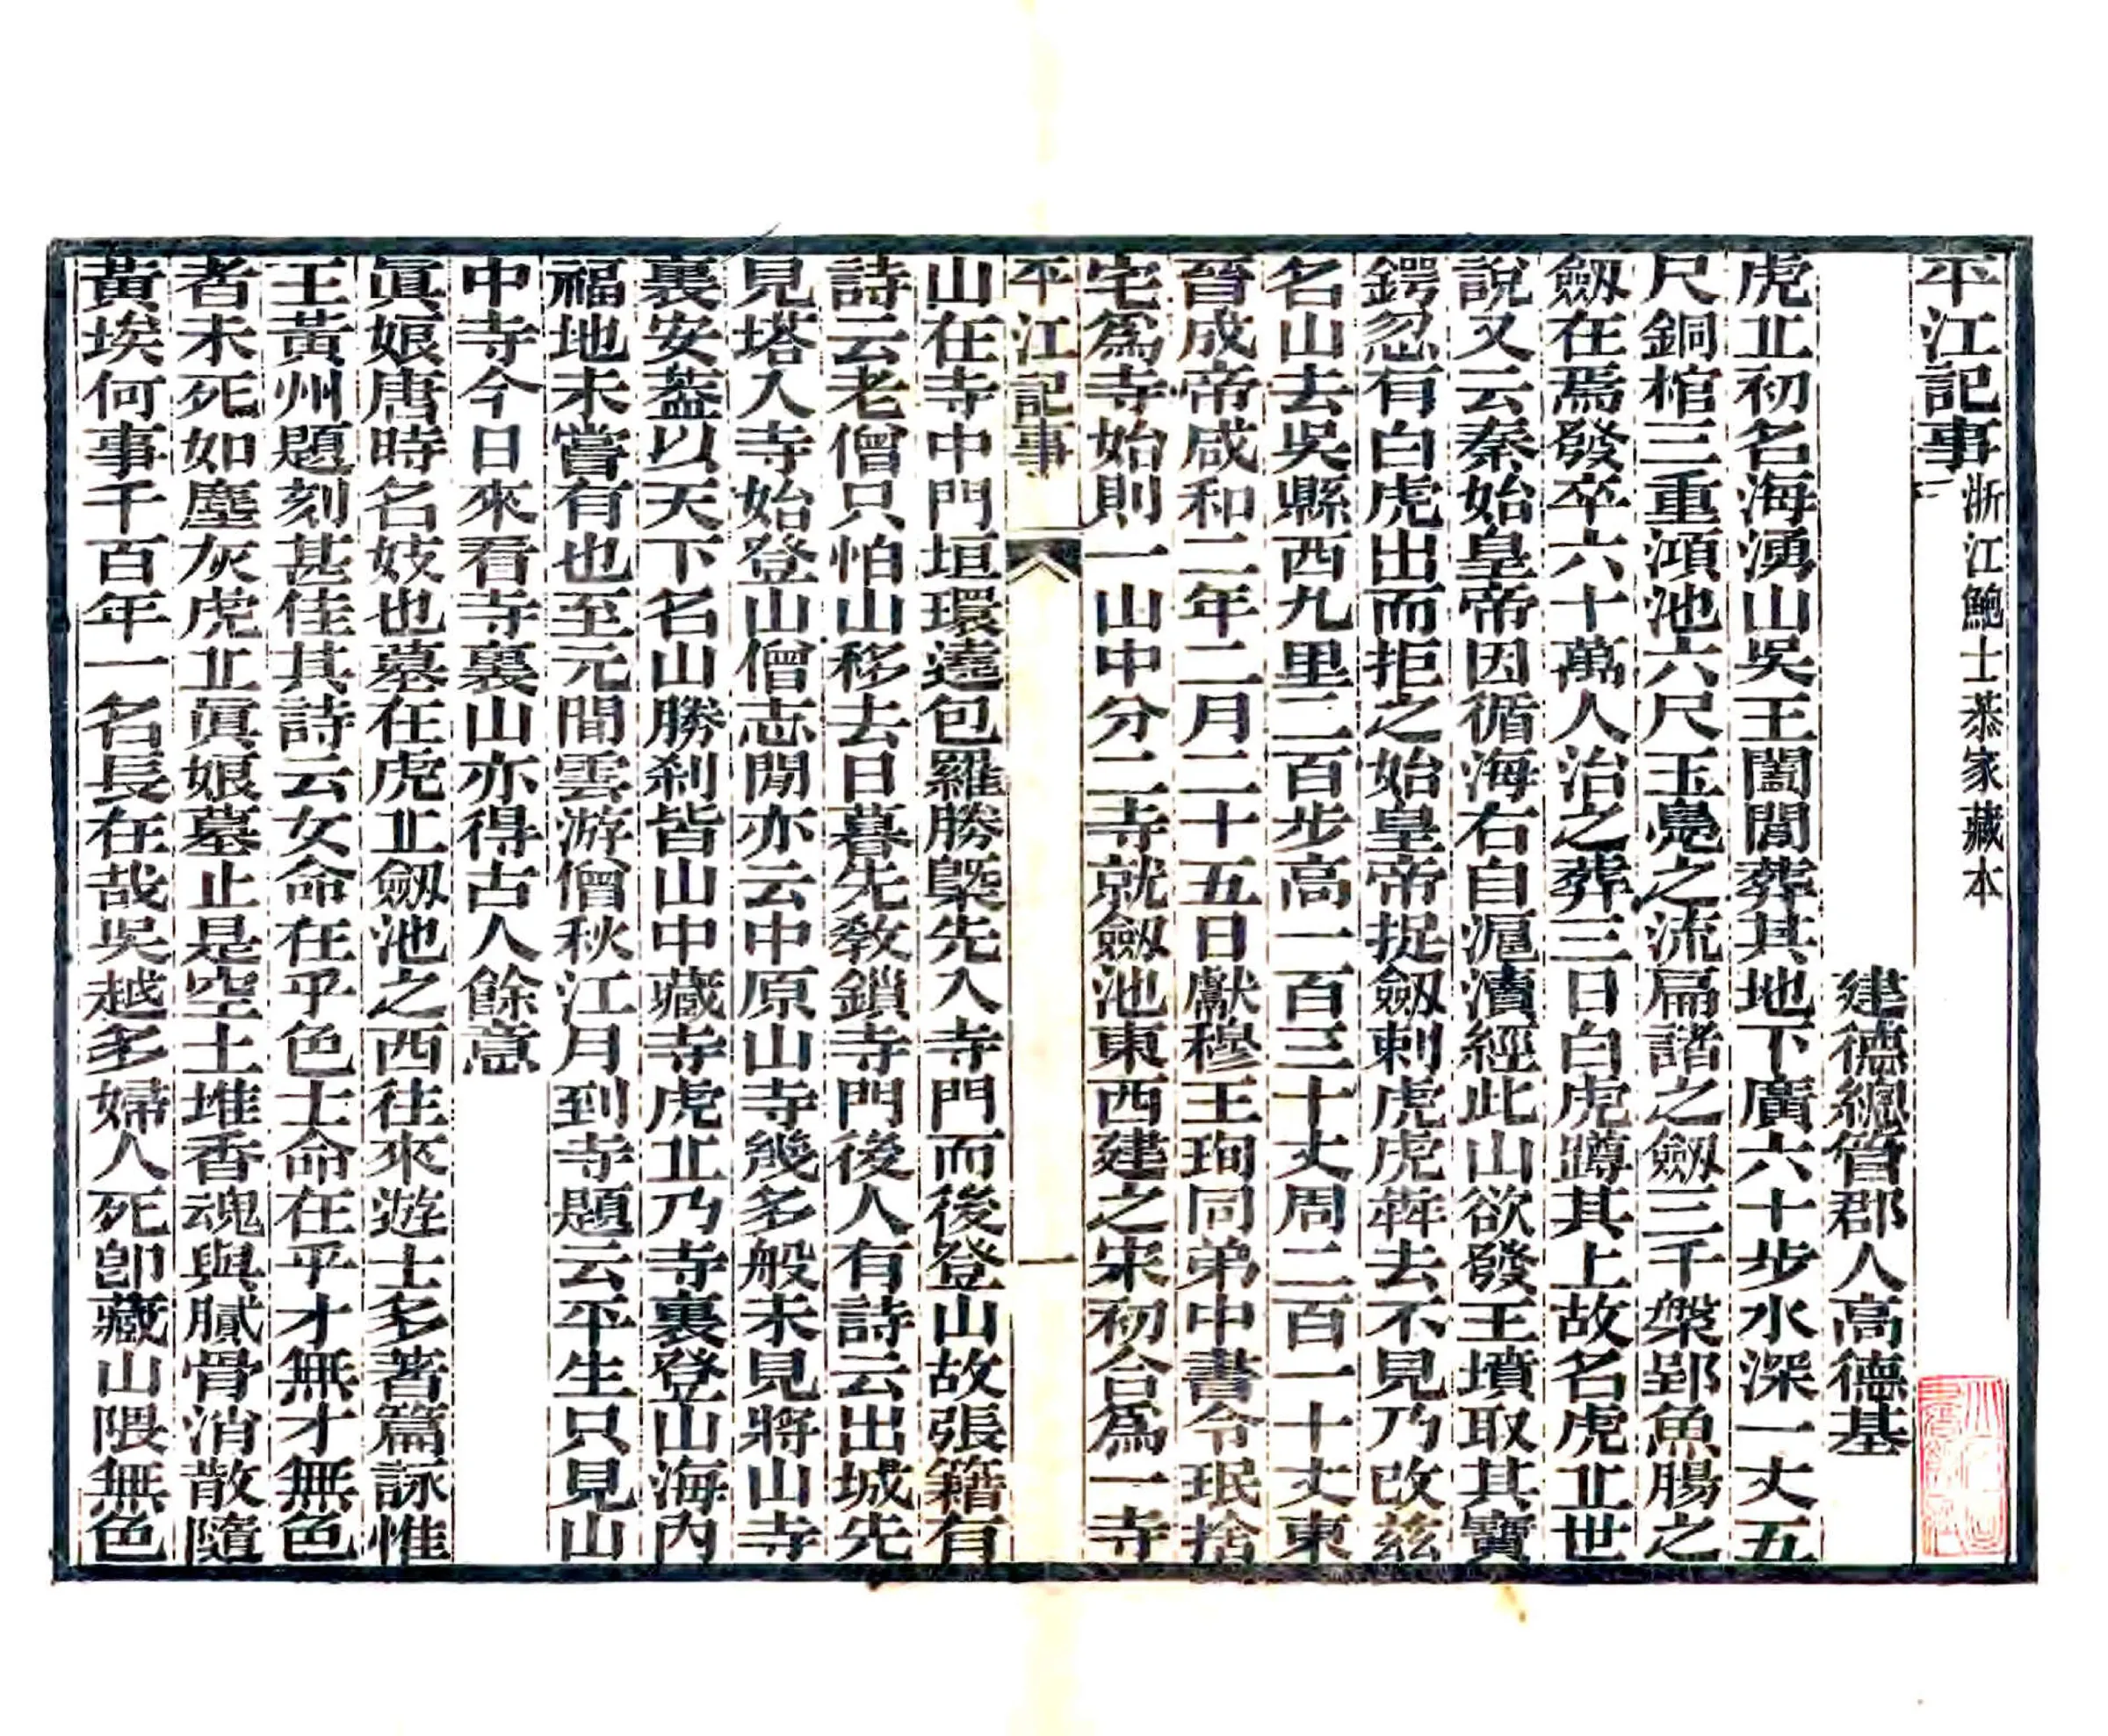 平江記事 浙江鮑士恭家藏本
建德總管郡人高德基
虎丠初名海湧山吳王闔閭葬其地下廣六十步水深一丈五
尺銅棺三重澒池六尺玉鳧之流扁諸之劒三千槃郢魚腸之
劒在焉發卒六十萬人治之葬三日白虎蹲其上故名虎丠世
說又云秦始皇帝因循海右自滬瀆經此山欲發王墳取其寶
鍔忽有白虎出而拒之始皇帝捉劒刺虎虎犇去不見乃改茲
名山去吳縣西九里二百步高一百三十丈周二百一十丈東
晉成帝咸和二年二月二十五日獻穆王珣同弟中書令珉捨
宅爲寺始則一山中分二寺就劒池東西建之宋初合爲一寺
平江記事
一
山在寺中門垣環遶包羅勝槩先入寺門而後登山故張籍有
詩云老僧只怕山移去日暮先敎鎖寺門後人有詩云出城先
見塔入寺始登山僧志閒亦云中原山寺幾多般未見將山寺
裏安葢以天下名山勝刹皆山中藏寺虎丠乃寺裏登山海內
福地未嘗有也至元間雲游僧秋江月到寺題云平生只見山
中寺今日來看寺裏山亦得古人餘意
眞娘唐時名妓也墓在虎丠劒池之西往來遊士多著篇詠惟
王黃州題刻甚佳其詩云女命在乎色士命在乎才無才無色
者未死如塵灰虎丠眞娘墓止是空土堆香魂與膩骨消散隨
黃埃何事千百年一名長在哉吳越多婦人死卽藏山隈無色